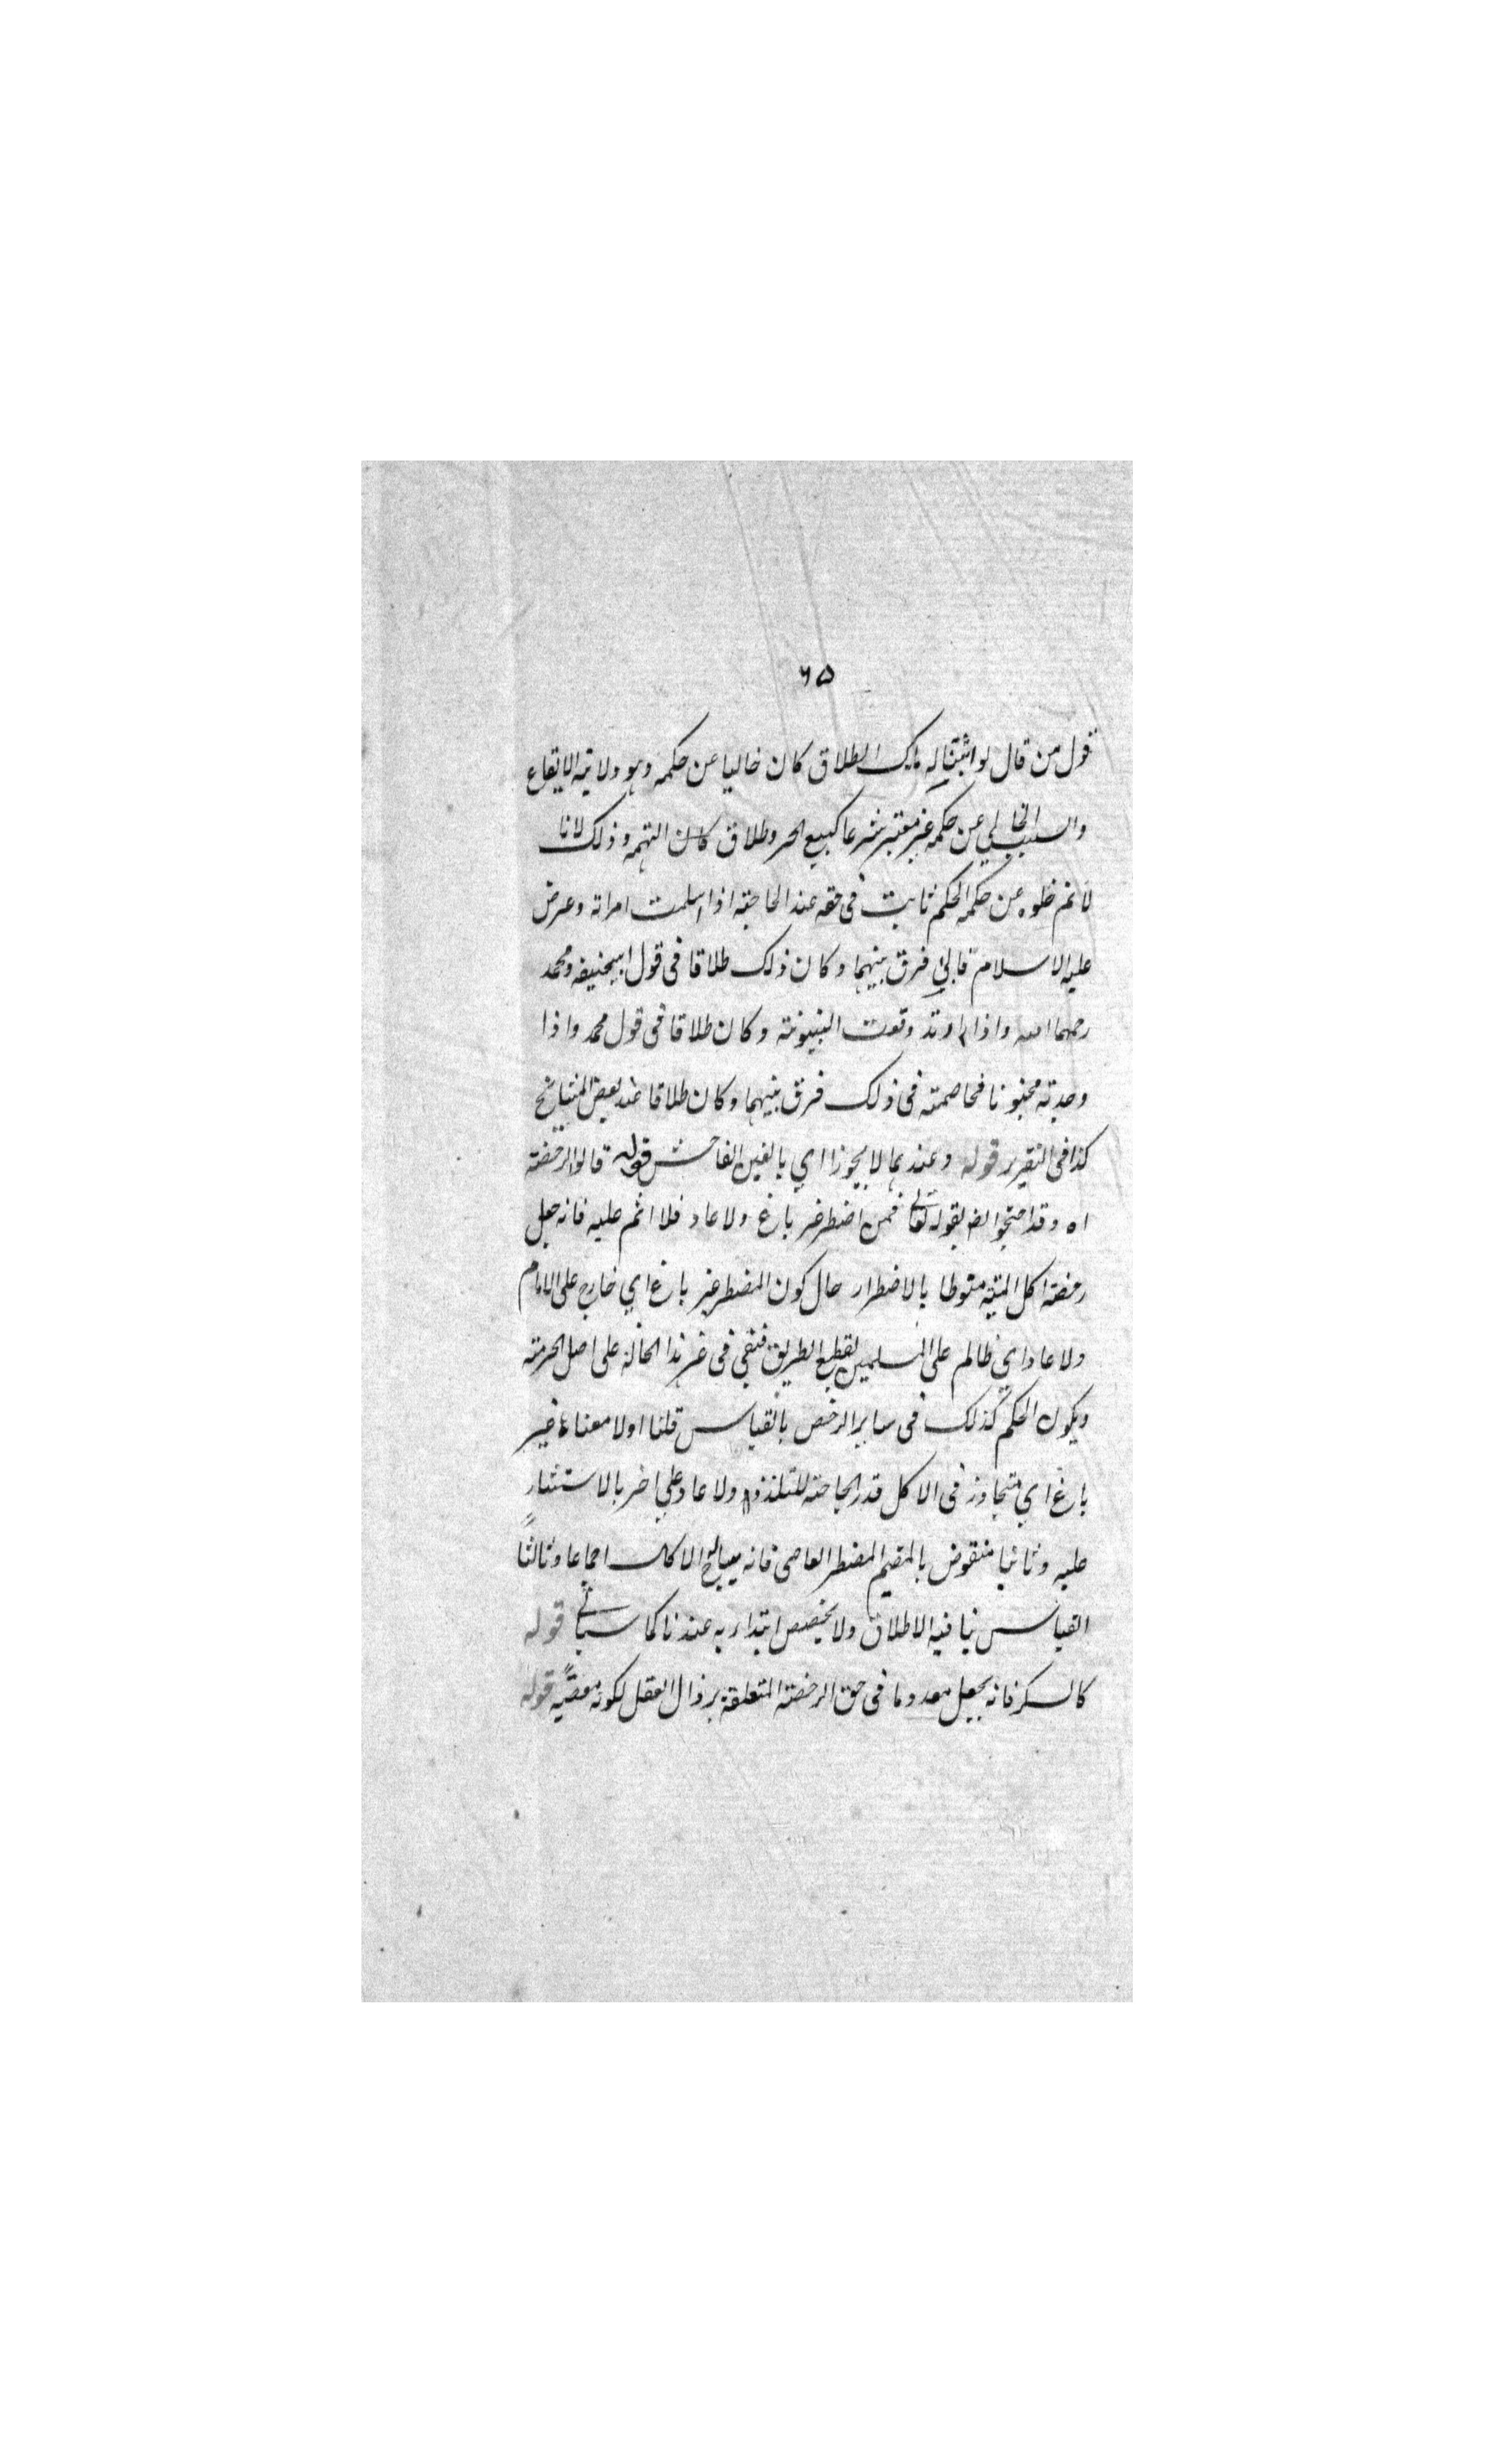 ٦٥
قول من قال لو اثبتنا له ملك الطلاق كان خاليا عن حكمه وهو ولاية الايقاع
والسبب الخالي عن حكمه غير معتبر شرعا كبيع الحر وطلاق البهيمة وذلك لانا
لا نم خلوه عن حكمه الحكم ثابت فى حقه عند الحاجة اذا اسلمت امراته وعرض
عليه الاسلام فابي فرق بينهما وكان ذلك طلاقا فى قول ابيحنيفه ومحمد
رحمهما الله واذا ارتد وقعت البينونة وكان طلاقا فى قول محمد واذا
وجدته مجنونا فخاصمته فى ذلك فرق بينهما وكان طلاقا عند بعض المشايخ
كذا فى التقرير قوله وعندهما لا يجوز اي بالغبن الفاحش قوله قالوا الرخصة
اه وقد احتجوا ايضا بقوله تعالى فمن اضطر غير باغ ولا عاد فلا اثم عليه فانه جعل
رخصة اكل الميتة منوطا بالاضطرار حال كون المضطر غير باغ اي خارج على الامام
ولا عاد اي ظالم على المسلمين بقطع الطريق فتبقى فى غير هذا الحالة على اصل الحرمة
ويكون الحكم كذلك فى ساير الرخص بالقياس قلنا اولا معناه غير
باغ اي متجاوز فى الاكل قدر الحاجة للتلذذ ولا عاد على اخر بالاستيثار
عليه وثانيا منقوض بالمقيم المضطر العاصى فانه يباح له الاكل اجماعا وثالثا
القياس ينافيه الاطلاق ولا يخصص ابتداء به عندنا كما سيأتي قوله
كالسكر فانه يجعل معدوما فى حق الرخصة المتعلقة بزوال العقل لكونه معصية قوله